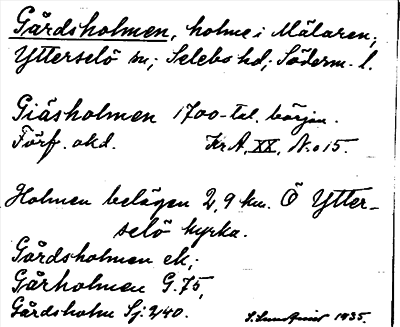 Gårdsholmen, holme i Mälaren;
Ytterselö sn; Selebo hd; Söderm. l.
Giäsholmen 1700-tal. början.
Förf. okd. Kr A, XX, N:o 15.
Holmen belägen 2,9 km. Ö Ytter-
selö kyrka.
Gårdsholmen ek;
Gårholmen G. 75;
Gårdsholm Sj. 240.
1935.